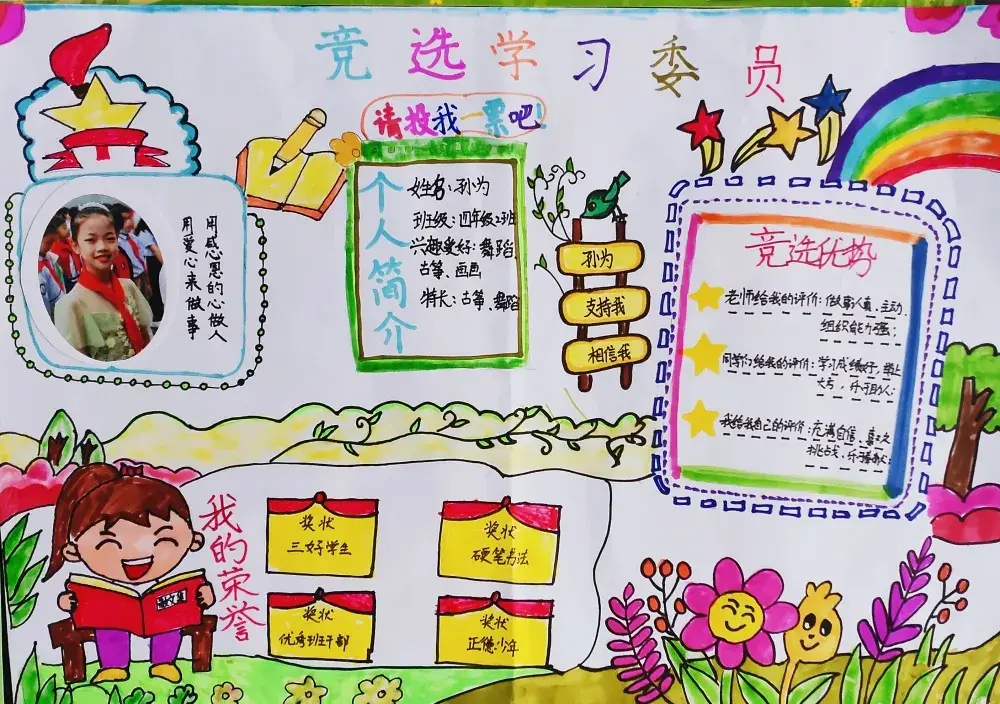 竞选学习委员
请投我一票吧!
用感恩的心做人
用爱心来做事
个人简介
姓名:孙为
班级:四年级2班
兴趣爱好:舞蹈
古筝、画画
特长:古筝、舞蹈
孙为
支持我
相信我
竞选优势
老师给我的评价:做事认真、主动、
组织能力强;
同学们给我的评价:学习成绩好,举止
大方,乐于助人;
我给我自己的评价:充满自信,喜欢
挑战,乐于奉献;
我的荣誉
奖状
三好学生
奖状
硬笔书法
奖状
优秀班干部
奖状
正德少年